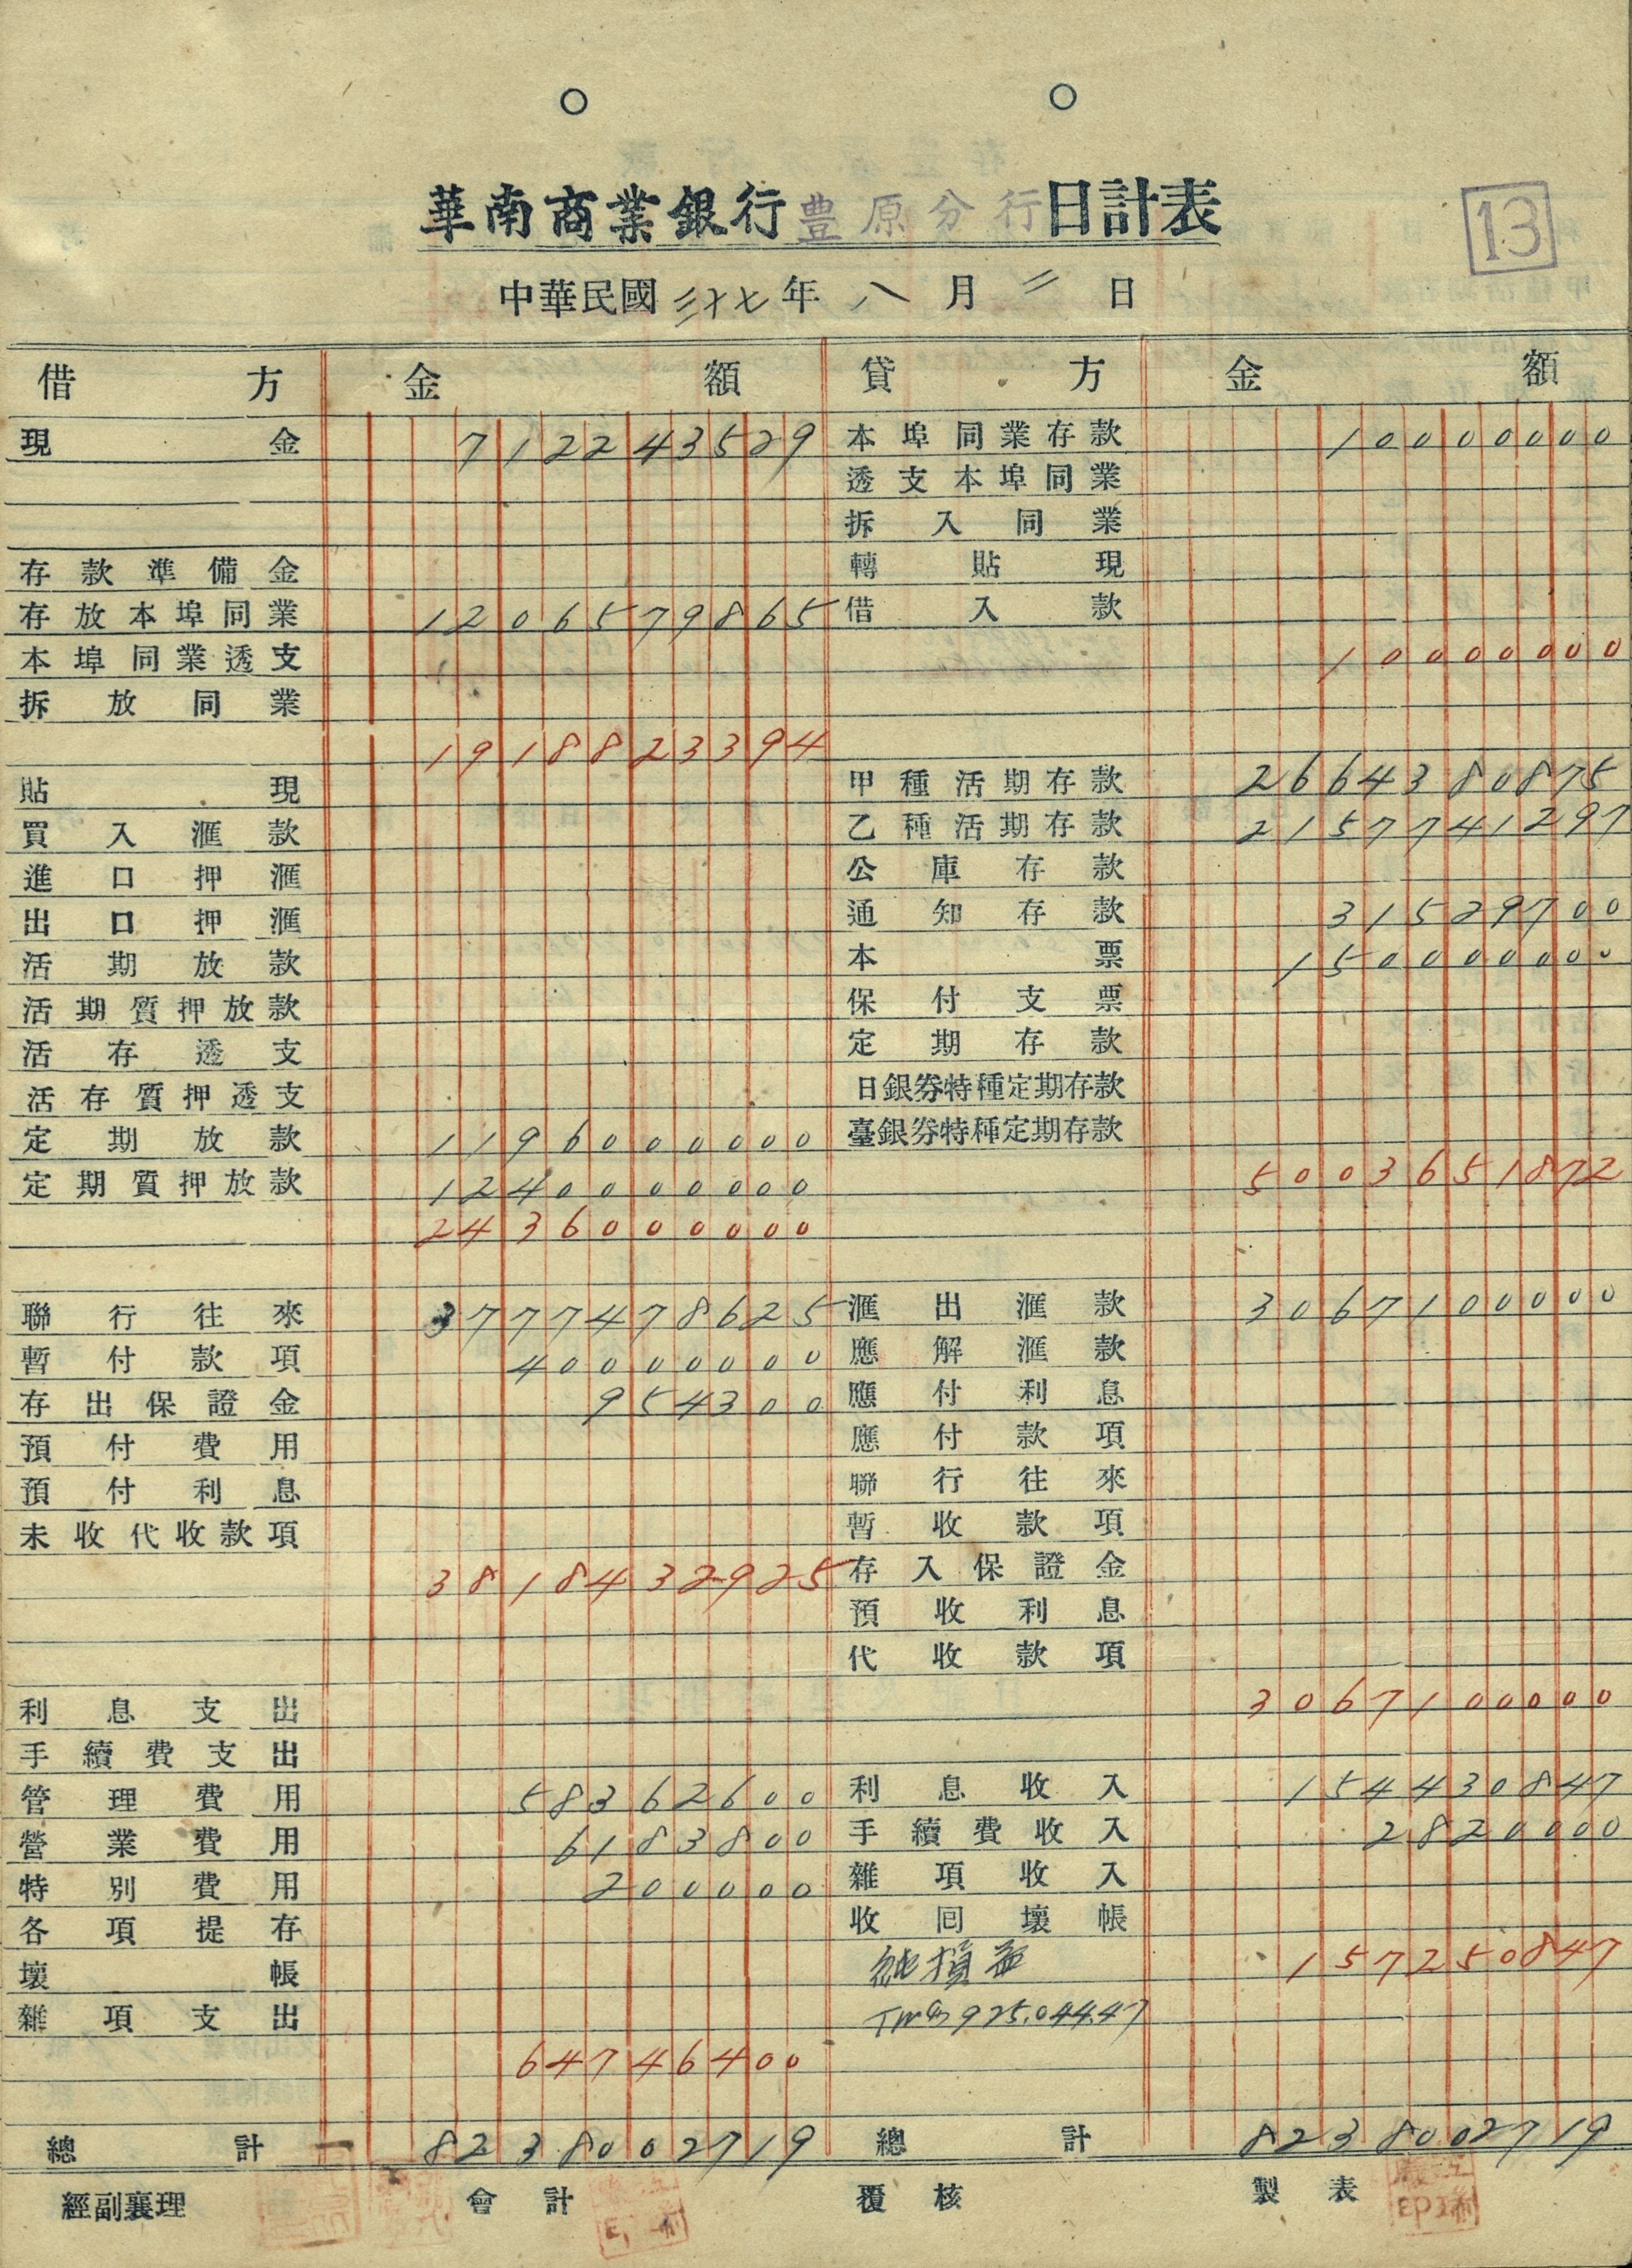 華南商業銀行豊原分行日計表
13
中華民國 三十七 年 八 月 二 日
借方 金額 貸方 金額
現金 712243529 本埠同業存款 10000000
透支本埠同業
拆入同業
存款準備金 轉貼現
存放本埠同業 1206579865 借入款
本埠同業透支 10000000
拆放同業
1918823394
貼現 甲種活期存款 2664380875
買入滙款 乙種活期存款 2157741297
進口押滙 公庫存款
出口押滙 通知存款 31529700
活期放款 本票 150000000
活期質押放款 保付支票
活存透支 定期存款
活存質押透支 日銀券特種定期存款
定期放款 1196000000 臺銀券特種定期存款
定期質押放款 1240000000 5003651872
2436000000
聯行往來 3777478625 滙出滙款 3067100000
暫付款項 40000000 應解滙款
存出保證金 954300 應付利息
預付費用 應付款項
預付利息 聯行往來
未收代收款項 暫收款項
3818432925 存入保證金
預收利息
代收款項
利息支出 3067100000
手續費支出
管理費用 58362600 利息收入 154430847
營業費用 6183800 手續費收入 2820000
特別費用 200000 雜項收入
各項提存 收囘壞帳
壞帳 純損益 157250847
雜項支出 925.044.47
64746400
總計 8238002719 總計 8238002719
經副襄理 會計 覆核 製表